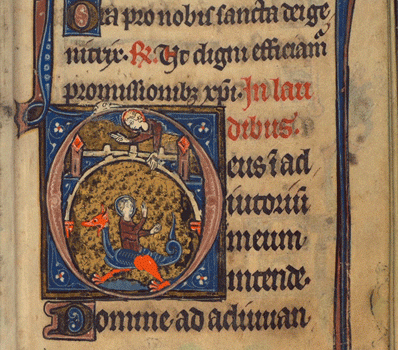 Ora pro nobis sancta dei ge
nitrix. R. Ut digni efficiam̃
promissionibꝫ xp̃i. In lau
dibus.
Deus ĩ ad
iutoriũ
meum
intende.
Domine ad adiuuan